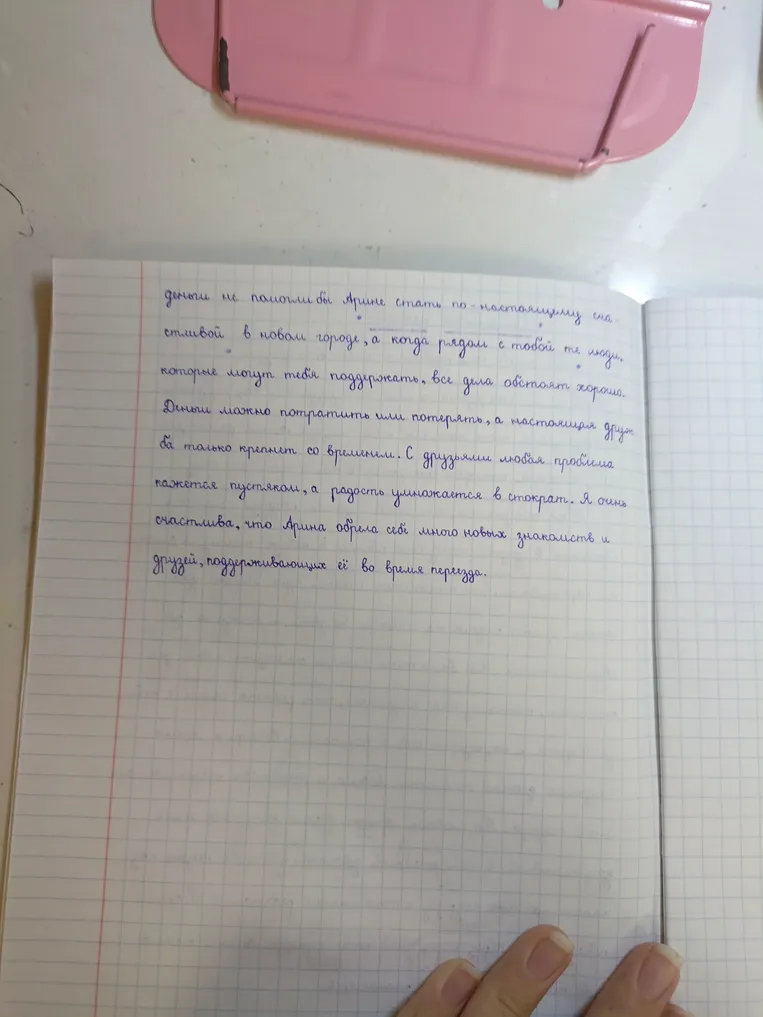 деньги не помогли бы Арине стать по-настоящему сча-
стливой в новом городе, а когда рядом с тобой те люди,
которые могут тебя поддержать, все дела обстоят хорошо.
Деньги можно потратить или потерять, а настоящая друж
ба только крепнет со временем. С друзьями любая проблема
кажется пустяком, а радость умножается в стократ. Я очень
счастлива, что Арина обрела себе много новых знакомств и
друзей, поддерживающих её во время переезда.